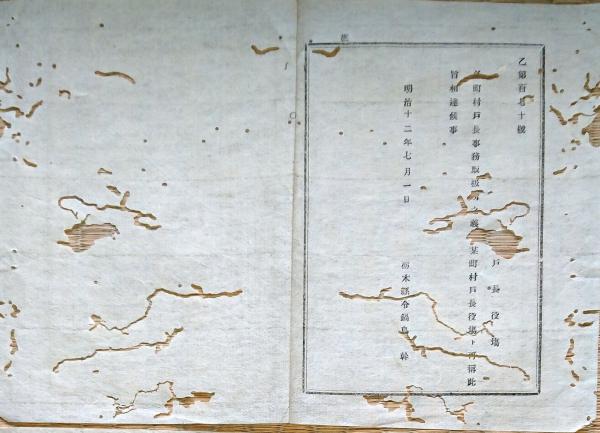 乙第百七十號
戸長役場
町村戸長事務取扱所之義某町村戸長役場ト可稱此
旨相達候事
明治十二年七月一日
栃木縣令鍋島幹